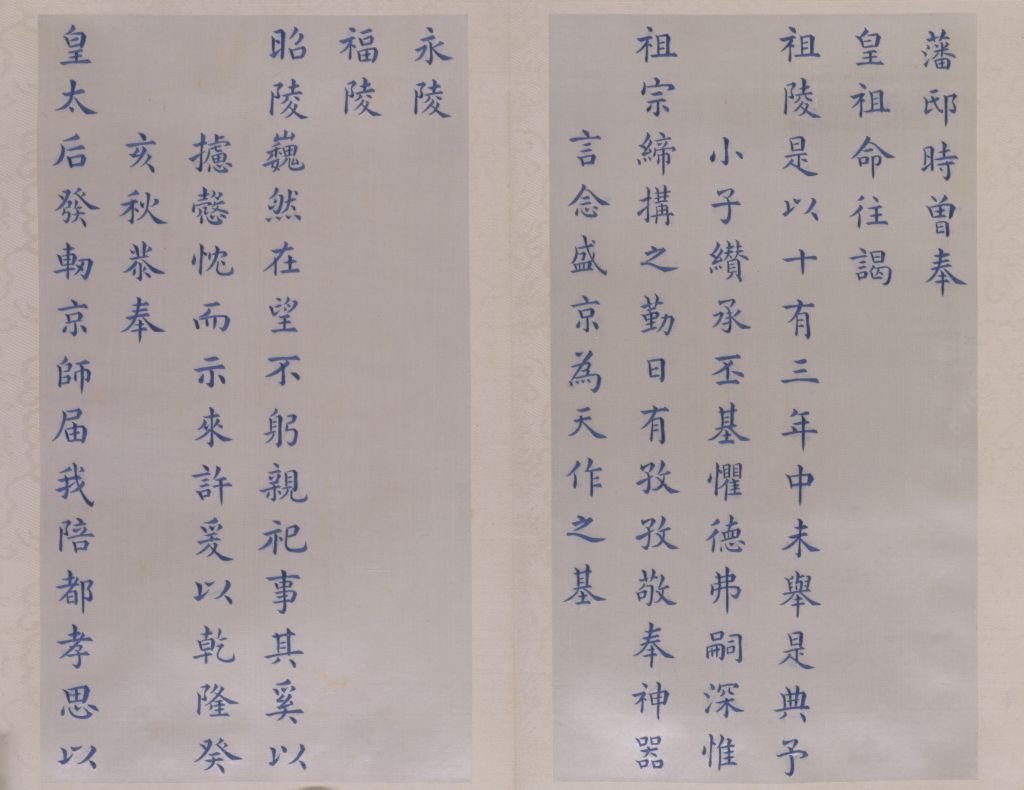 藩邸時曾奉
皇祖命往謁
祖陵是以十有三年中未舉是典予
小子纘承丕基懼德弗嗣深惟
祖宗締搆之勤日有孜孜敬奉神器
言念盛京為天作之基
永陵
福陵
昭陵巍然在望不躬親祀事其奚以
攄慤忱而示來許爰以乾隆癸
亥秋恭奉
皇太后發軔京師届我陪都孝思以